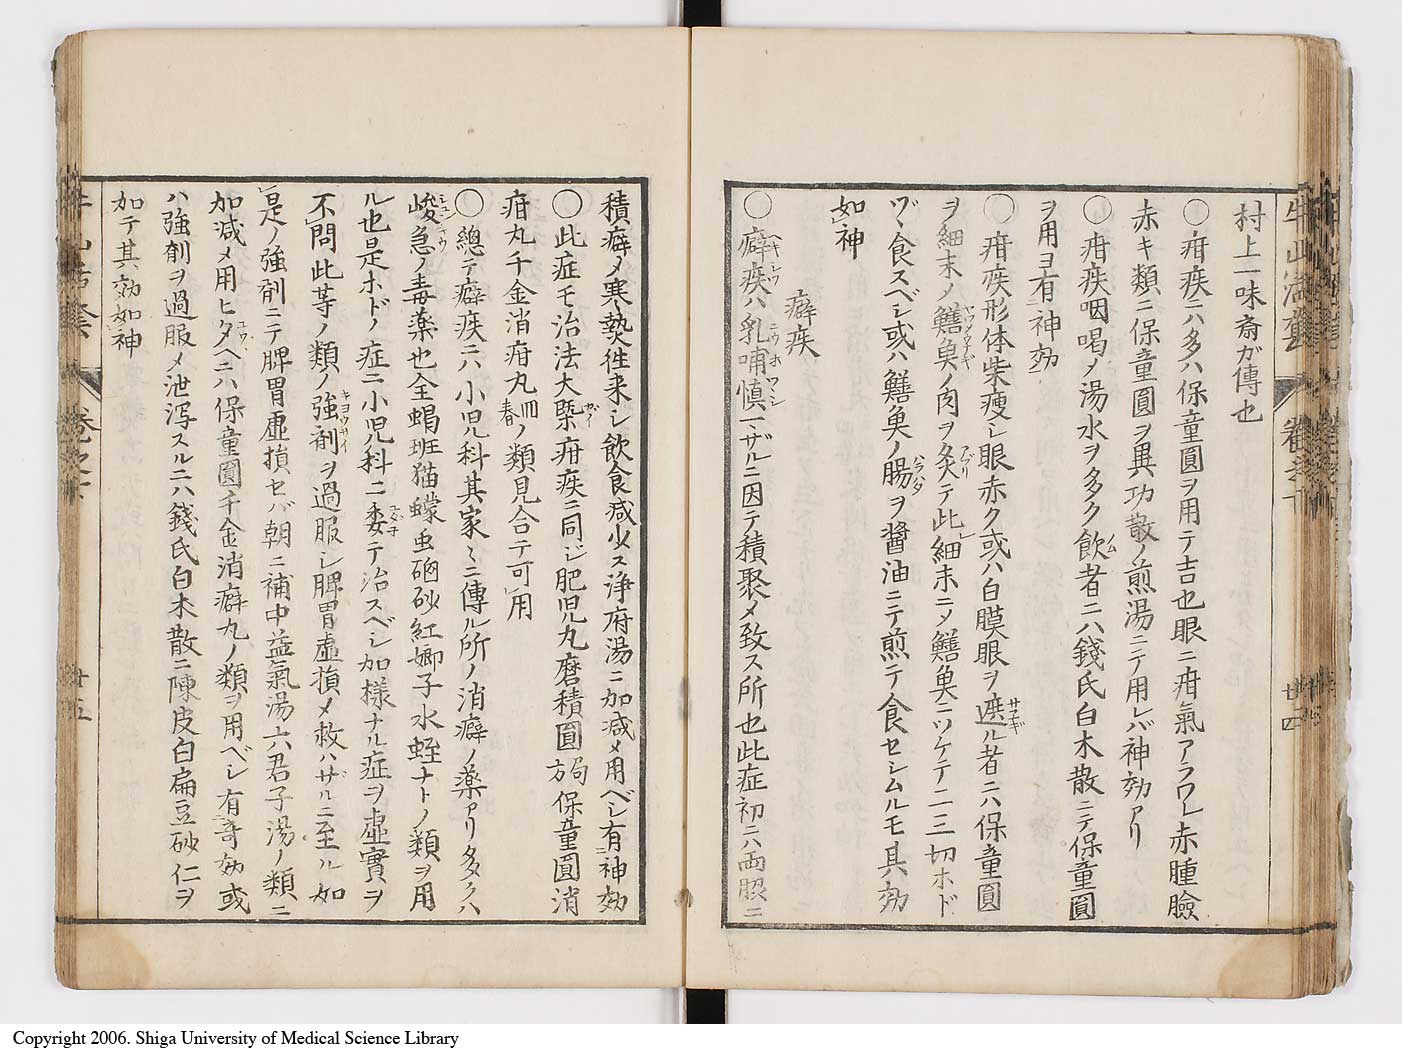 村上一味齋ガ傳也
〇疳疾ニハ多ハ保童圓ヲ用テ吉也眼ニ疳氣アラワレ赤腫臉
赤キ類ニ保童圓ヲ異功散ノ煎湯ニテ用レバ神効アリ
〇疳疾咽喝メ湯水ヲ多ク飲者ニハ錢氏白木散ニテ保童圓
ヲ用ヨ有神効
〇疳疾形体柴瘦シ眼赤ク或ハ白膜眼ヲ遮ル者ニハ保童圓
ヲ細末ノ鱔魚ノ肉ヲ炙テ此細末ニメ鱔魚ニツケテ二三切ホド
ヅヽ食スベシ或ハ鱔魚ノ腸ヲ醤油ニテ煎テ食セシムルモ其効
如神
癖疾
〇癖疾ハ乳哺慎マザルニ因テ積聚メ致ス所也此症初ニハ両脇ニ
積癖ノ寒熱徃来シ飲食减少ス浄府湯ニ加减メ用ベシ有神効
〇此症モ治法大槩疳疾ニ同ジ肥児丸磨積圓局方保童圓消
疳丸千金消疳丸回春ノ類見合テ可用
〇總テ癖疾ニハ小児科其家〻ニ傳ル所ノ消癖ノ薬アリ多クハ
峻急ノ毒薬也全蝎班猫蠓虫硇砂紅娜子水蛭ナトノ類ヲ用
ル也是ホドノ症ニ小児科ニ委テ治スベシ加様ナル症ヲ虚實ヲ
不問此等ノ類ノ強剤ヲ過服シ脾胃虚損メ救ハザルニ至ル如
是ノ強剤ニテ脾胃虚損セバ朝ニ補中益氣湯六君子湯ノ類ニ
加减メ用ヒタヘニハ保童圓千金消癖丸ノ類ヲ用ベシ有奇効或
ハ強剤ヲ過服メ泄瀉スルニハ錢氏白木散ニ陳皮白扁豆砂仁ヲ
加テ其効如神
牛山活套 卷之下 廿五
Copyright 2006. Shiga University of Medical Science Library